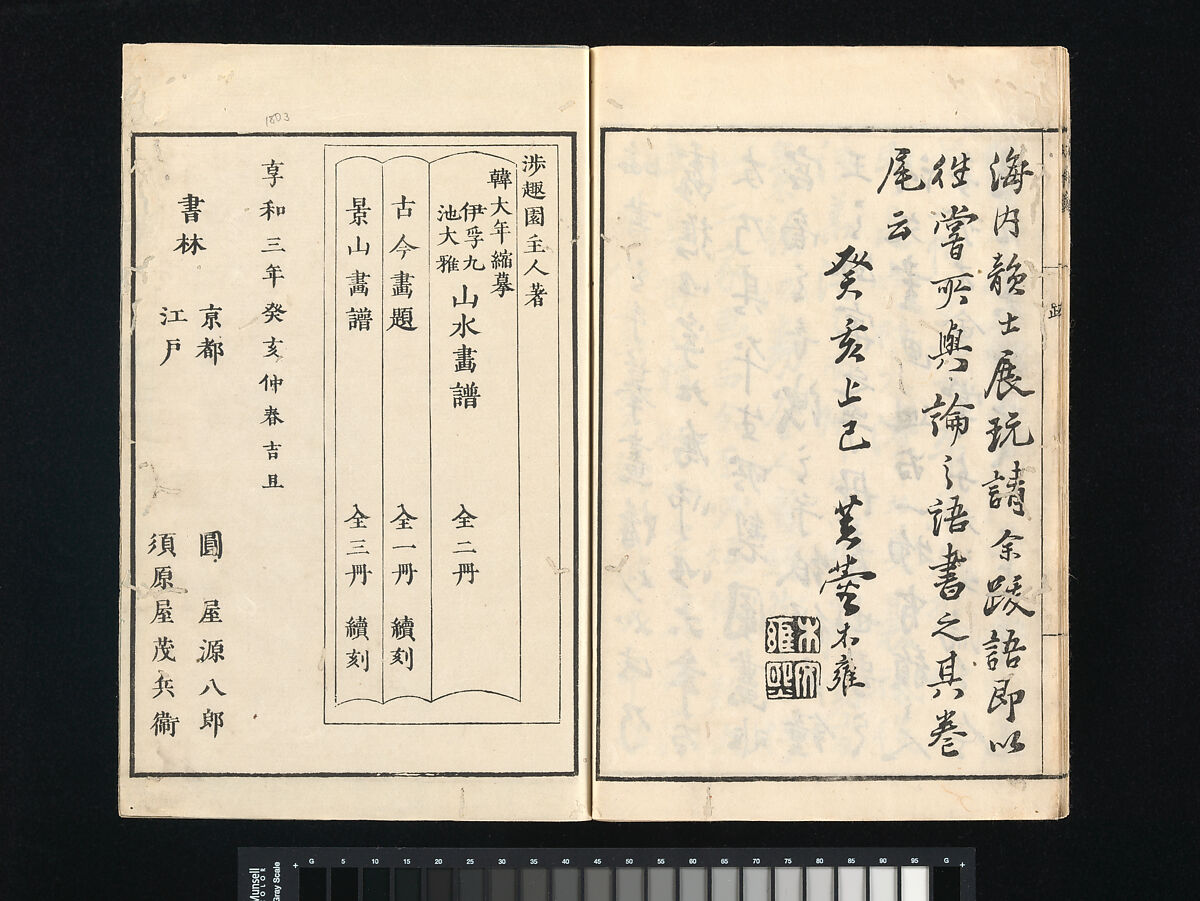 海内韻士展玩請余跋語即以
徃嘗所與論之語書之其巻
尾云
癸亥上巳 芙蓉木雍
跋
渉趣園主人著
韓大年縮摹
伊孚九
池大雅
山水畵譜 全二冊
古今畵題 全一冊 續刻
景山畵譜 全三冊 續刻
享和三年癸亥仲春吉旦
書林
京都 圓屋源八郎
江戸 須原屋茂兵衞
1803
Munsell
Color
Gray Scale
G 5 10 15 20 25 30 35 40 45 50 55 60 65 70 75 80 85 90 95 G